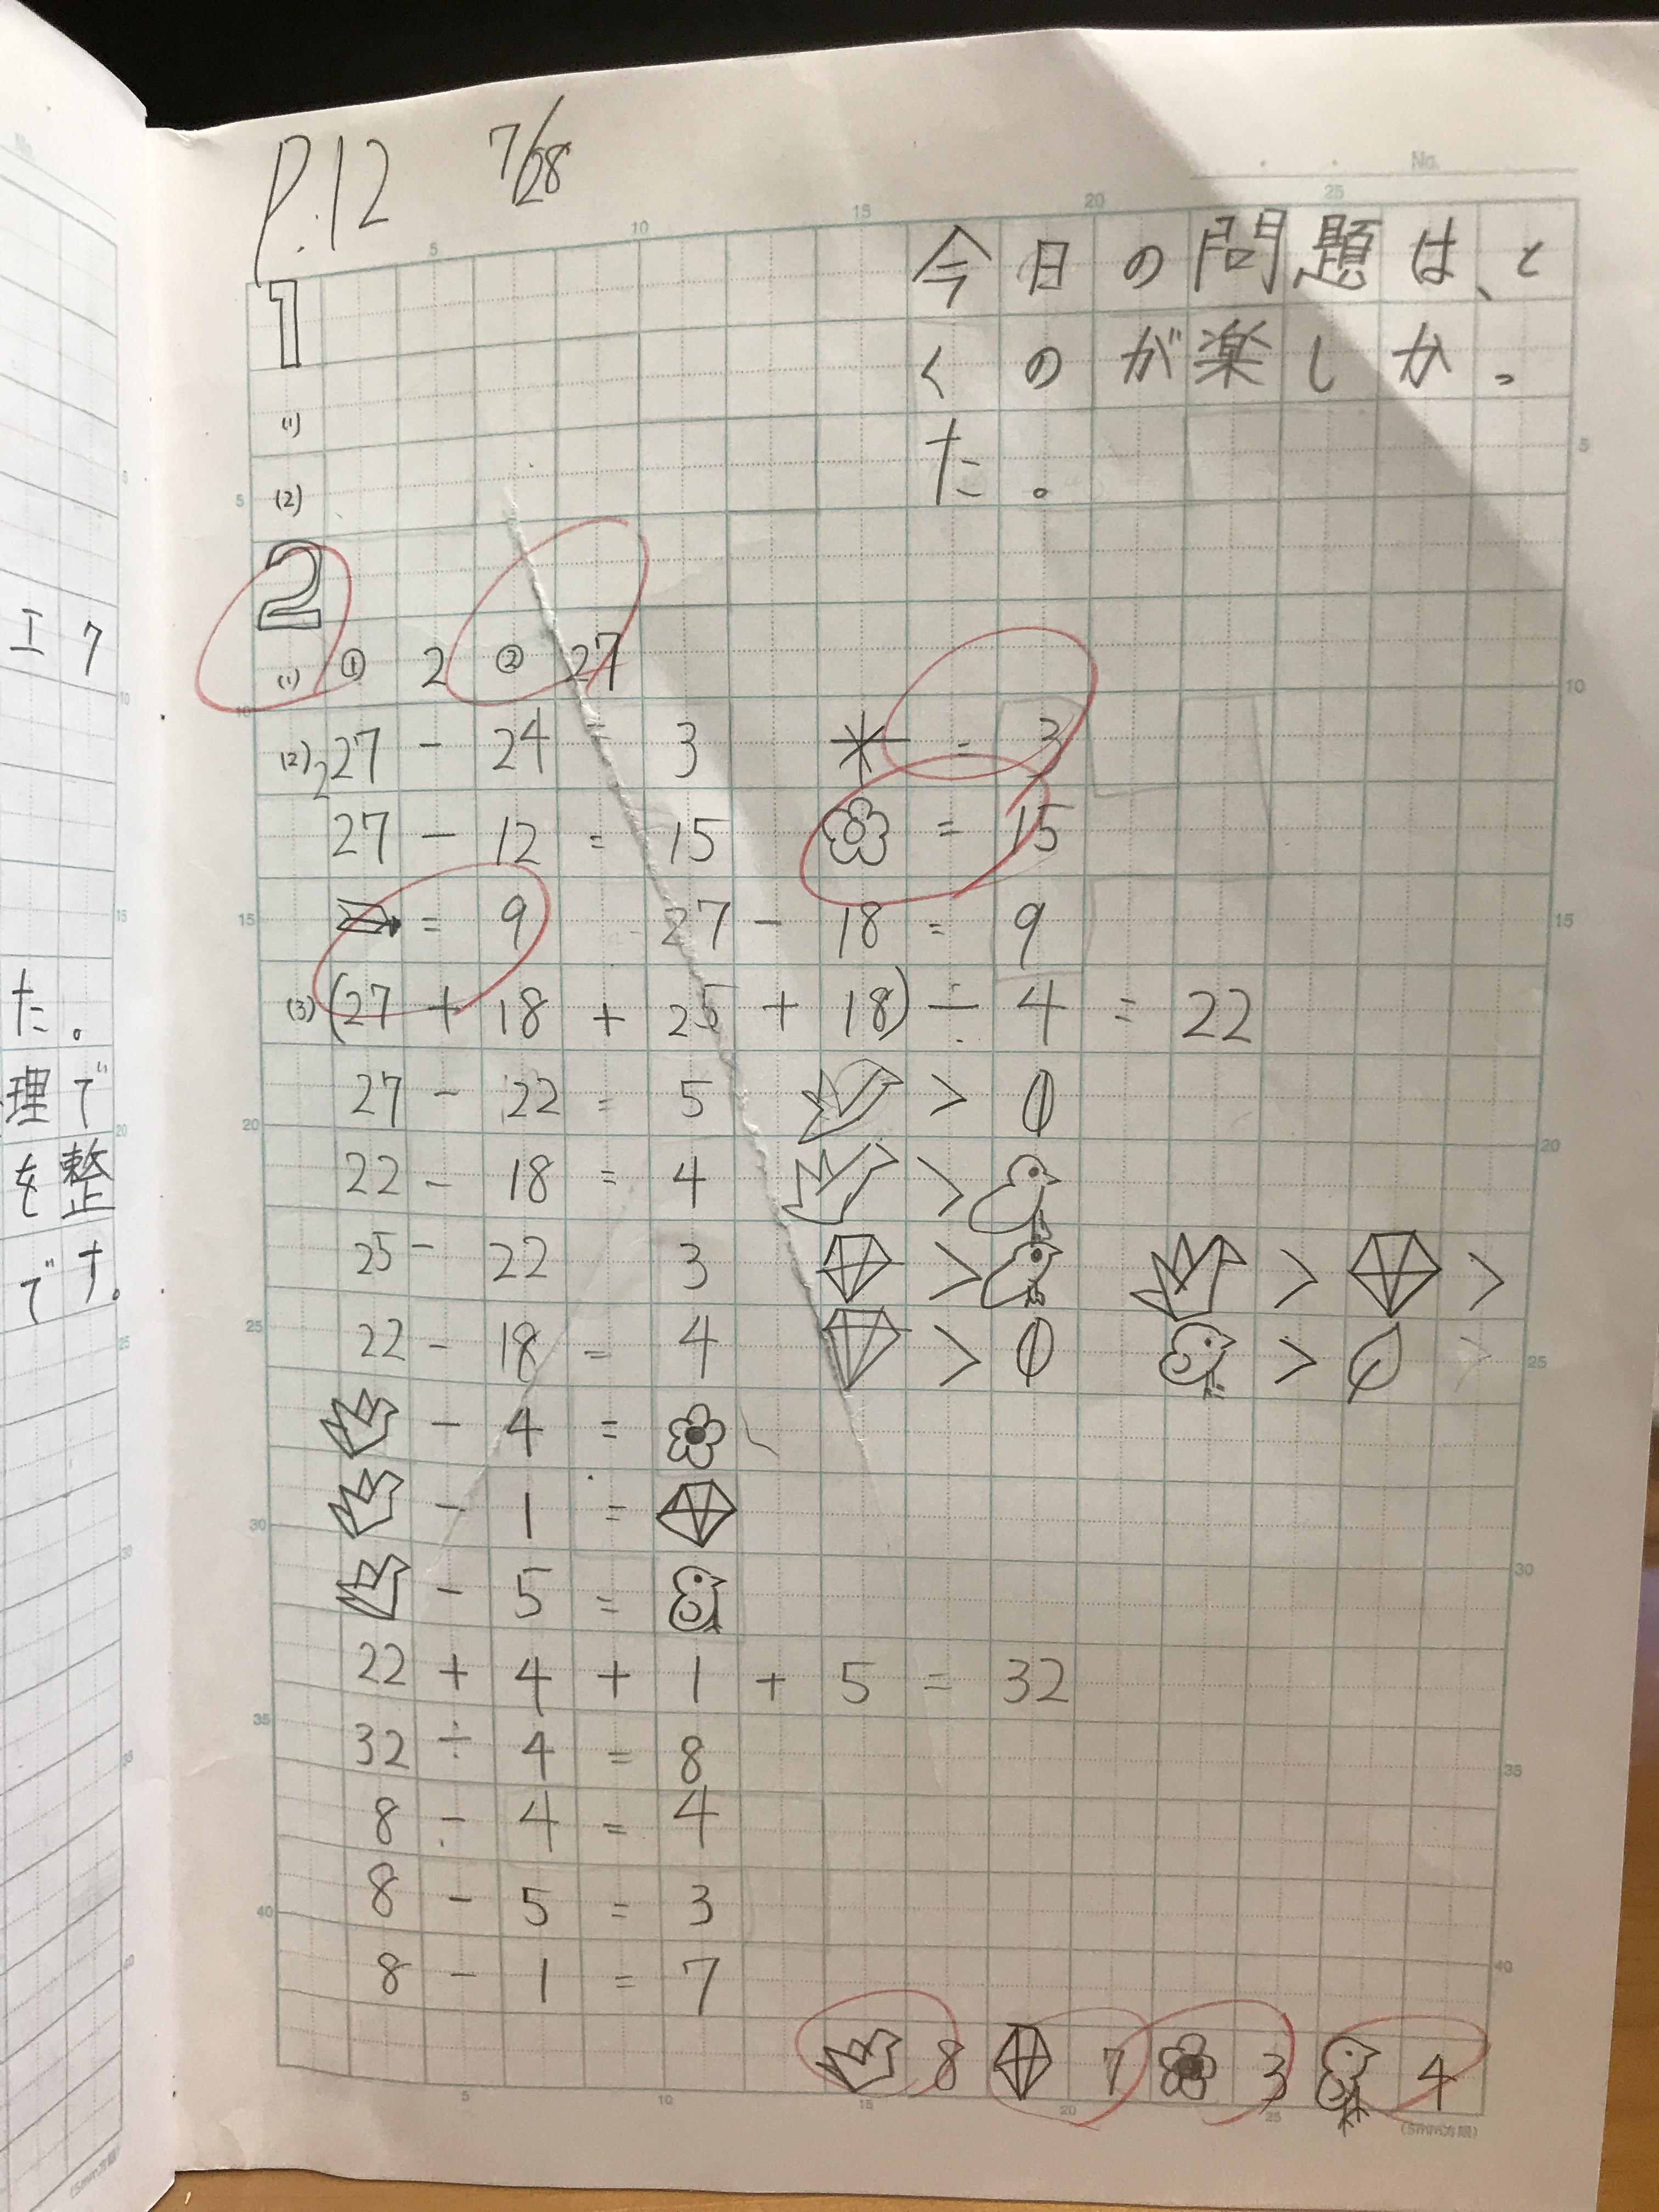 P.12 7/28
今日の問題は、と
くのが楽しかっ
た。
1
(1)
(2)
2
(1) ① 2 ② 27
(2) 27 - 24 = 3 = 3
27 - 12 = 15 = 15
= 9 27 - 18 = 9
(3) (27 + 18 + 25 + 18) ÷ 4 = 22
27 - 22 = 5 >
22 - 18 = 4 >
25 - 22 3 > > >
22 - 18 = 4 > >
- 4 =
- 1 =
- 5 =
22 + 4 + 1 + 5 = 32
32 ÷ 4 = 8
8 - 4 = 4
8 - 5 = 3
8 - 1 = 7
8 7 3 4
エク
た。
理で
を整
です。
No.
(5mm方眼)